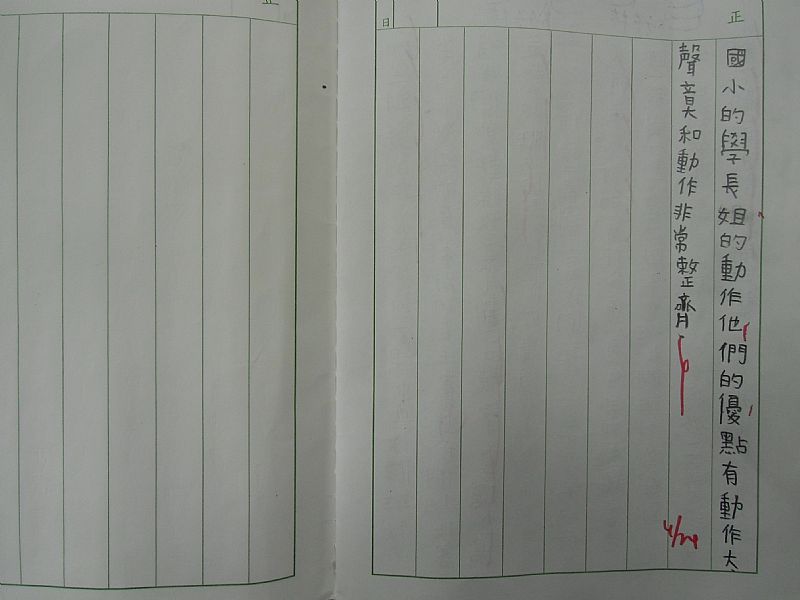 正
國小的學長姐的動作他們的優點有動作大、
聲音大和動作非常整齊
4/24
日